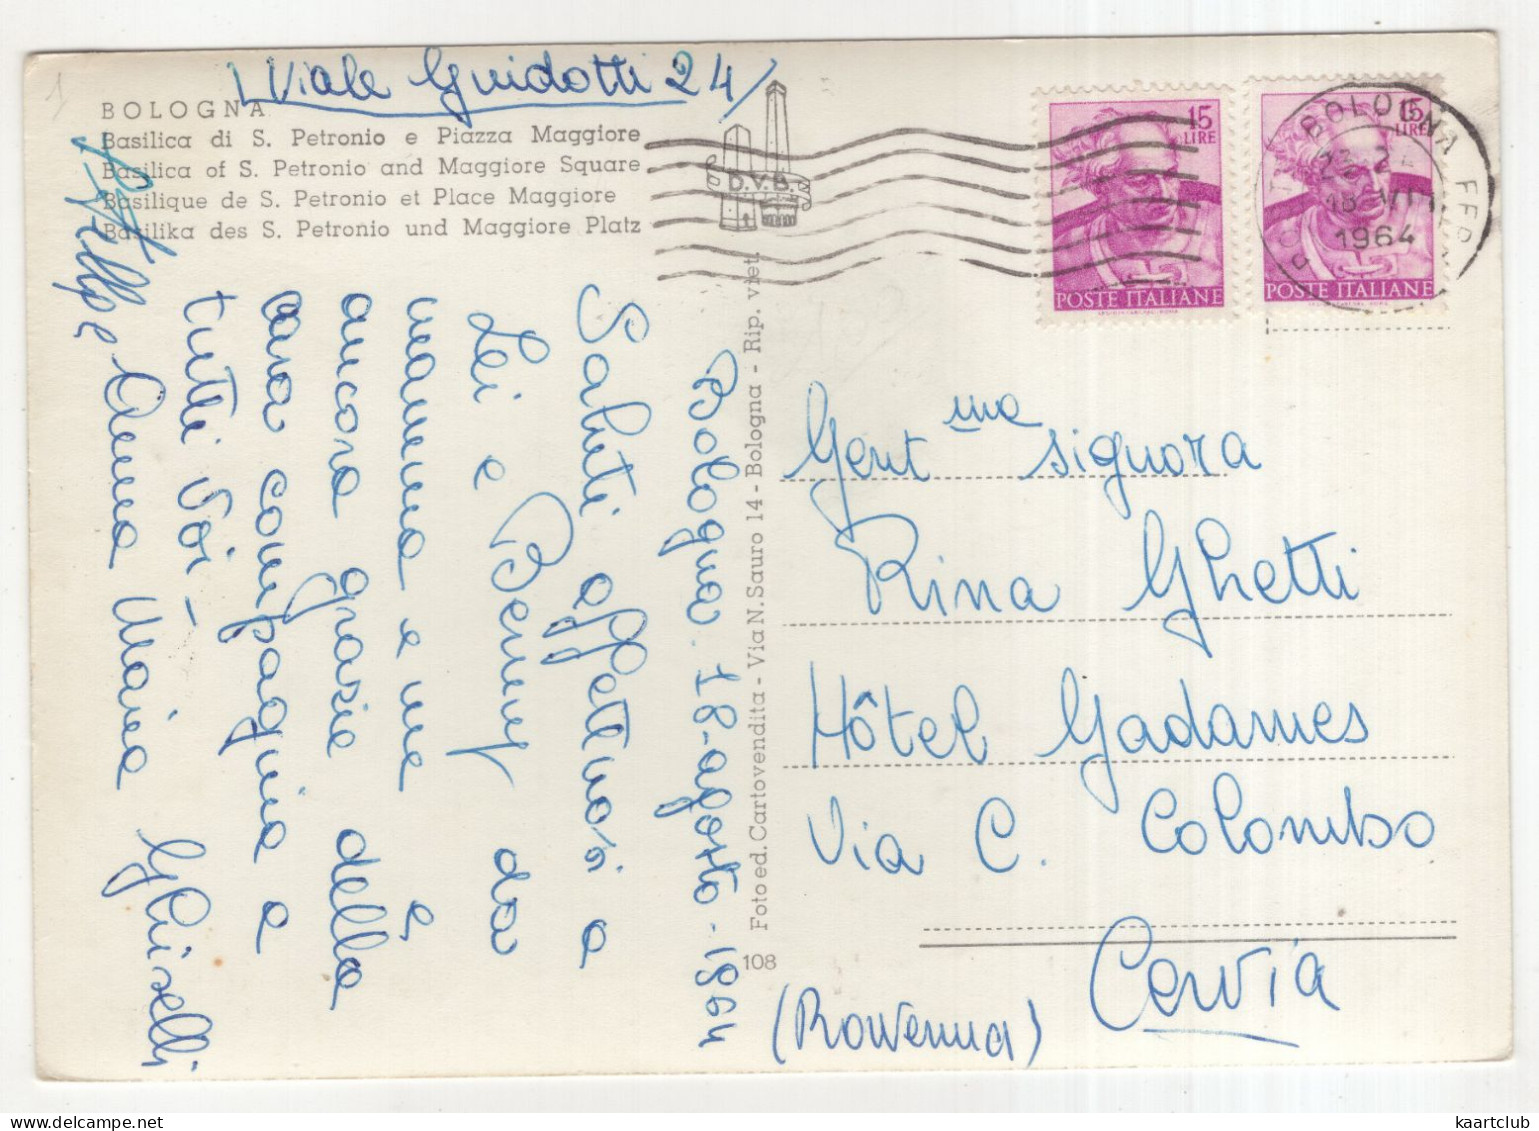 Viale Guidotti 24
BOLOGNA
Basilica di S. Petronio e Piazza Maggiore
Basilica of S. Petronio and Maggiore Square
Basilique de S. Petronio et Place Maggiore
Basilika des S. Petronio und Maggiore Platz
D.V.B.
15
LIRE
POSTE ITALIANE
15
LIRE
POSTE ITALIANE
BOLOGNA FERR
1964
Bologna. 18-agosto-1964
Saluti affettuosi a
Lei e Benny da
mamma e me e
ancora grazie della
cara compagnia a
tutti Voi -
Anna Maria Ghiselli
Foto ed. Cartovendita - Via N. Sauro 14 - Bologna - Rip. viet.
108
Gent ma signora
Rina Ghetti
Hôtel Gadames
Via C. Colombo
Cervia
(Ravenna)
kaartclub